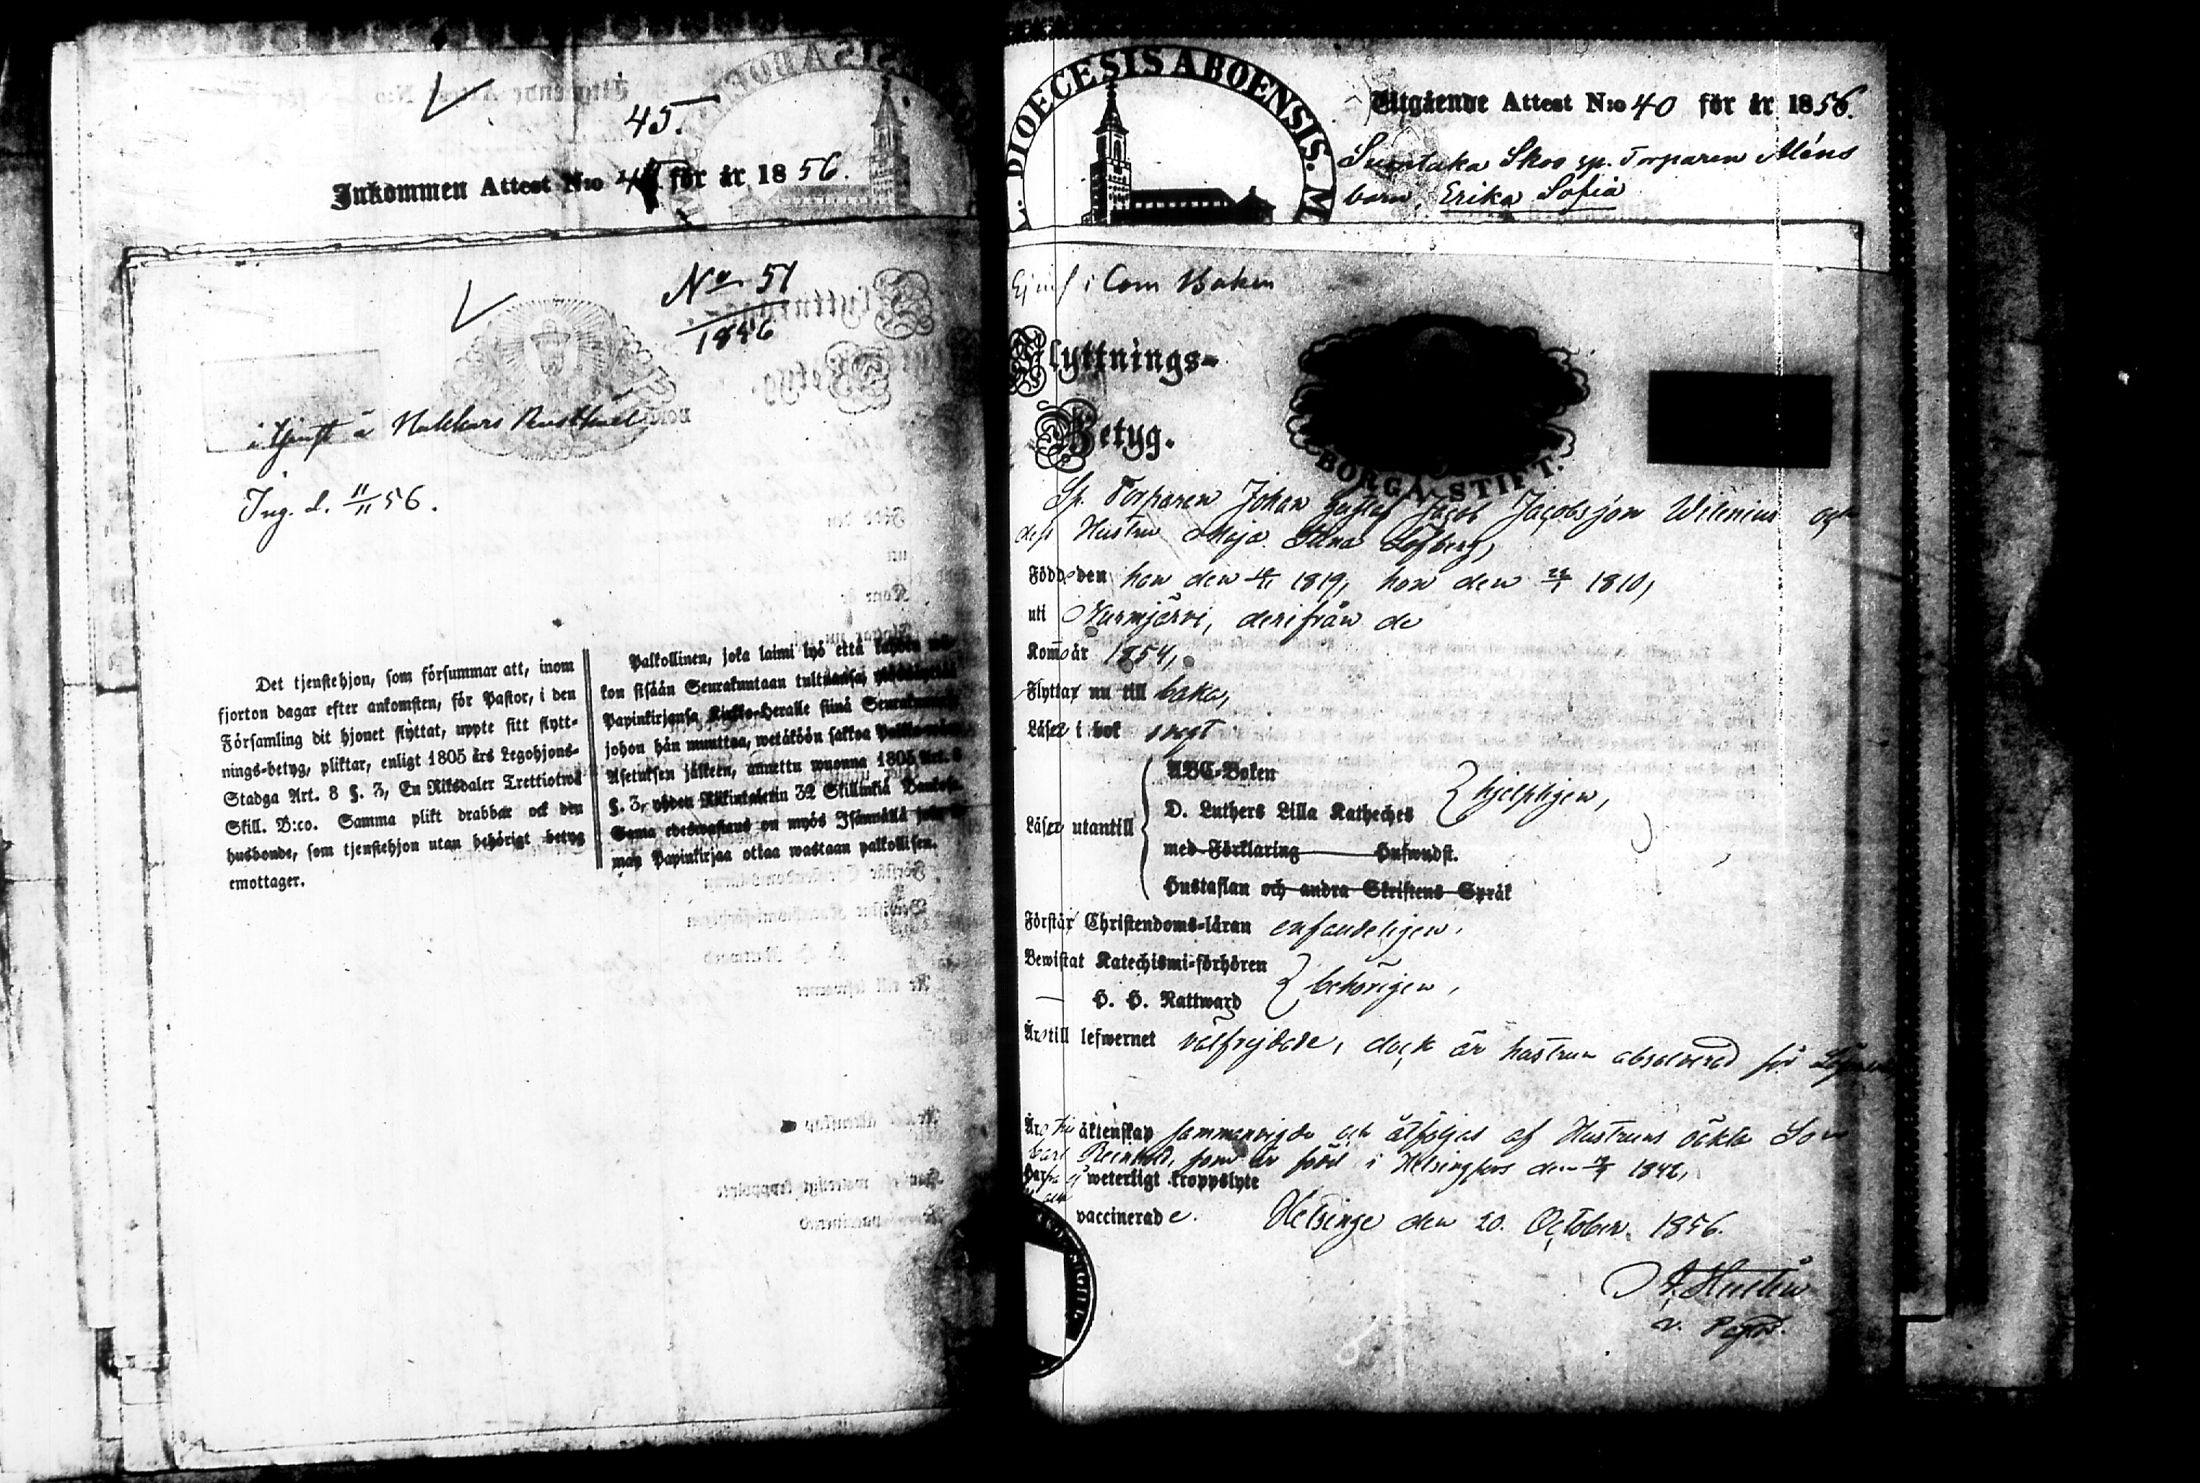 45.
Inkommen Attest N:o för år 1856.
No 51
1856
i tjenst å Rusthåll
Ing. d. 11/11 56.
Det tjenstehjon, som försummar att, inom
fjorton dagar efter ankomsten, för Pastor, i den
Församling dit hjonet flyttat, uppte sitt flytt-
nings-betyg, pliktar, enligt 1805 års Legohjons-
Stadga Art. 8 §. 3, En Riksdaler Trettiotwå
Skill. B:co. Samma plikt drabbar ock den
husbonde, som tjenstehjon utan behörigt betyg
emottager.
Palkollinen, joka laimi lyö että kahden wii-
kon sisään Seurakuntaan tultuansa,
Papinkirjansa Kirkko-Heralle siinä Seurakunnassa
johon hän muuttaa, wetäköön sakkoa
Asetuksen jälkeen, annettu wuonna 1805 Art. 8
§. 3, yhden Riikintalerin 32 Skillinkiä Banko.
Sama edeswastaus on myös Isännällä joka il-
man Papinkirjaa ottaa wastaan palkollisen.
DIOECESIS ABOENSIS. M
Utgående Attest N:o 40 för år 1856.
Skoo sp. Torparen Aléns
barn, Erika Sofia
i Com Boken
Flyttnings-
Betyg.
BORGÅ STIFT.
Sp. Torparen Johan Gustaf Jacob Jacobsson Wilenius och
dess Hustru Maja Stina Löfberg,
Födde den han den 1819, hon den 1810,
uti Nurmjärvi, derifrån de
Kommo år 1854,
Flytta nu till baka,
Läser i bok svagt
ABC-Boken
D. Luthers Lilla Katheches hjelpligen,
Läser utantill
med Förklaring Hufwudst.
Hustaflan och andra Skriftens Språk
Förstår Christendoms-läran enfaldeligen.
Bewistat Katechismi-förhören
H. H. Nattward behörigen,
Äro till lefwernet välfrejdade, dock är hustrun absolverad för
Äro till äktenskap sammanvigde och åtföljas af Hustruns oäkta Son
Carl Reinhold, som är född i Helsingfors den 1842,
weterligt kroppslyte
vaccinerade. Helsinge den 20. October 1856.